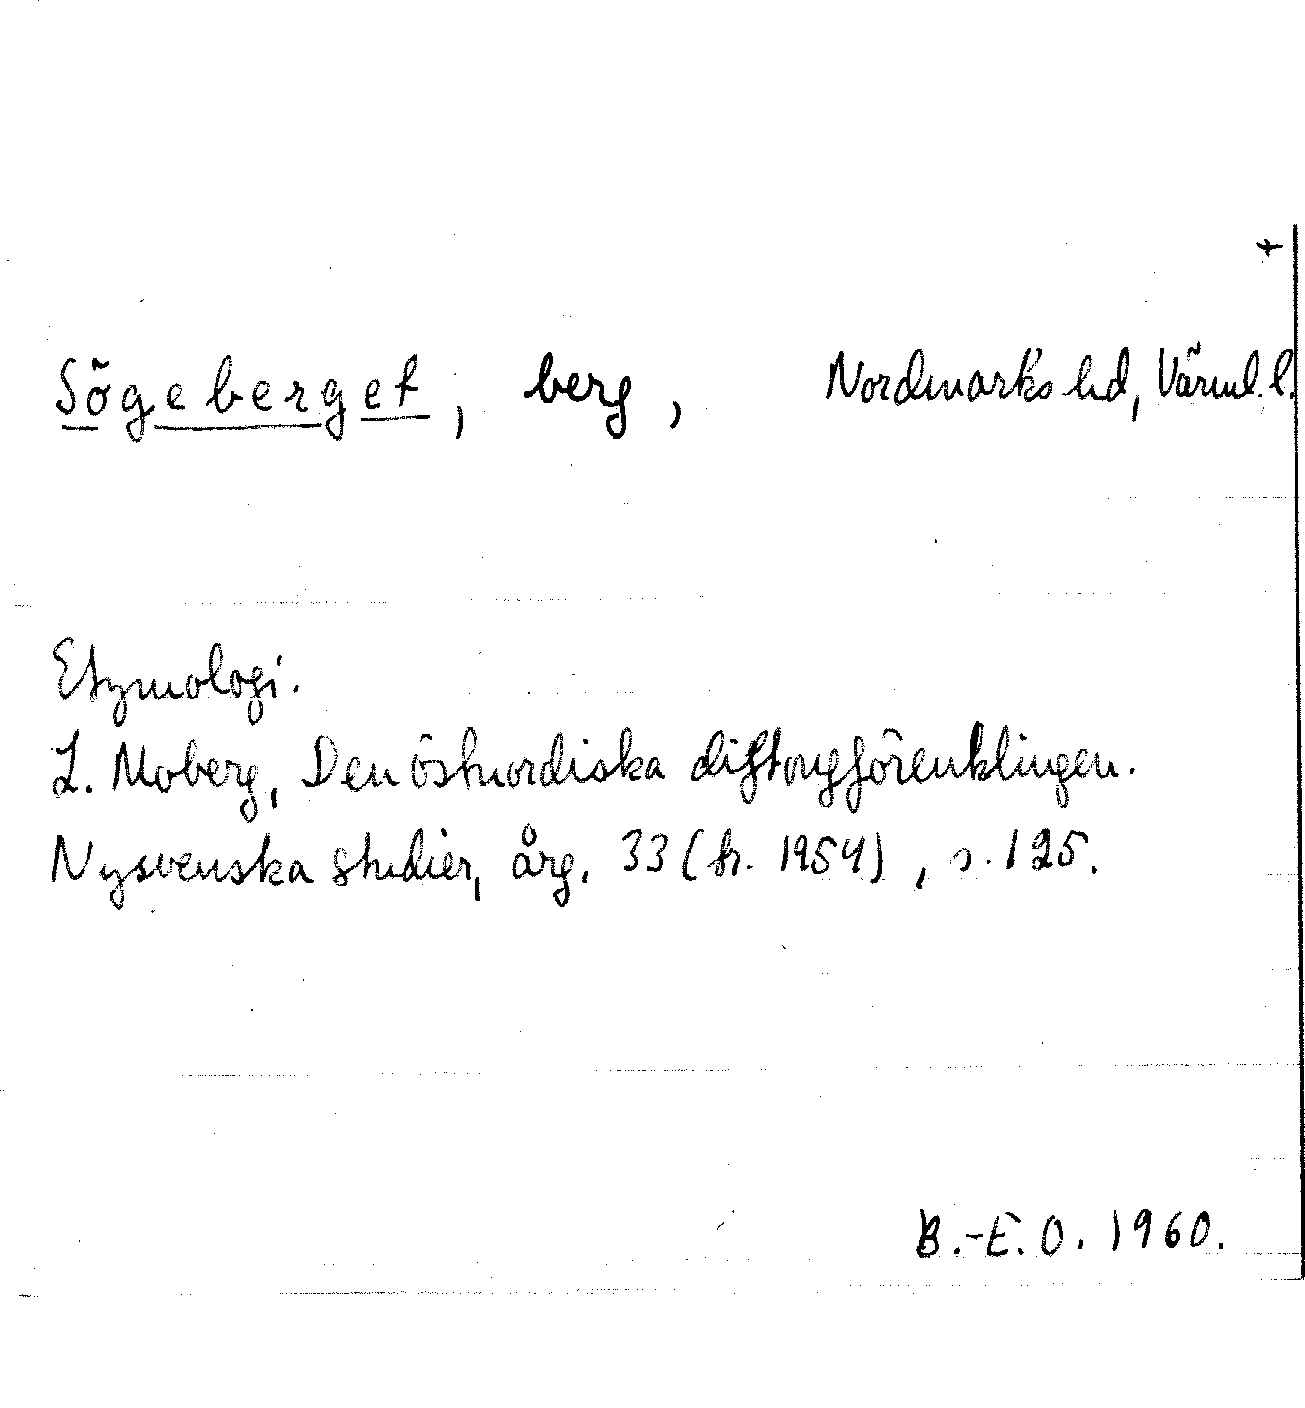 Sögeberget, berg, Nordmarks hd, Värml. l.
Etymologi.
L. Moberg, Den östnordiska diftongförenklingen.
Nysvenska studier, årg. 33 (fr. 1954), s. 125.
B.-E. O. 1960.